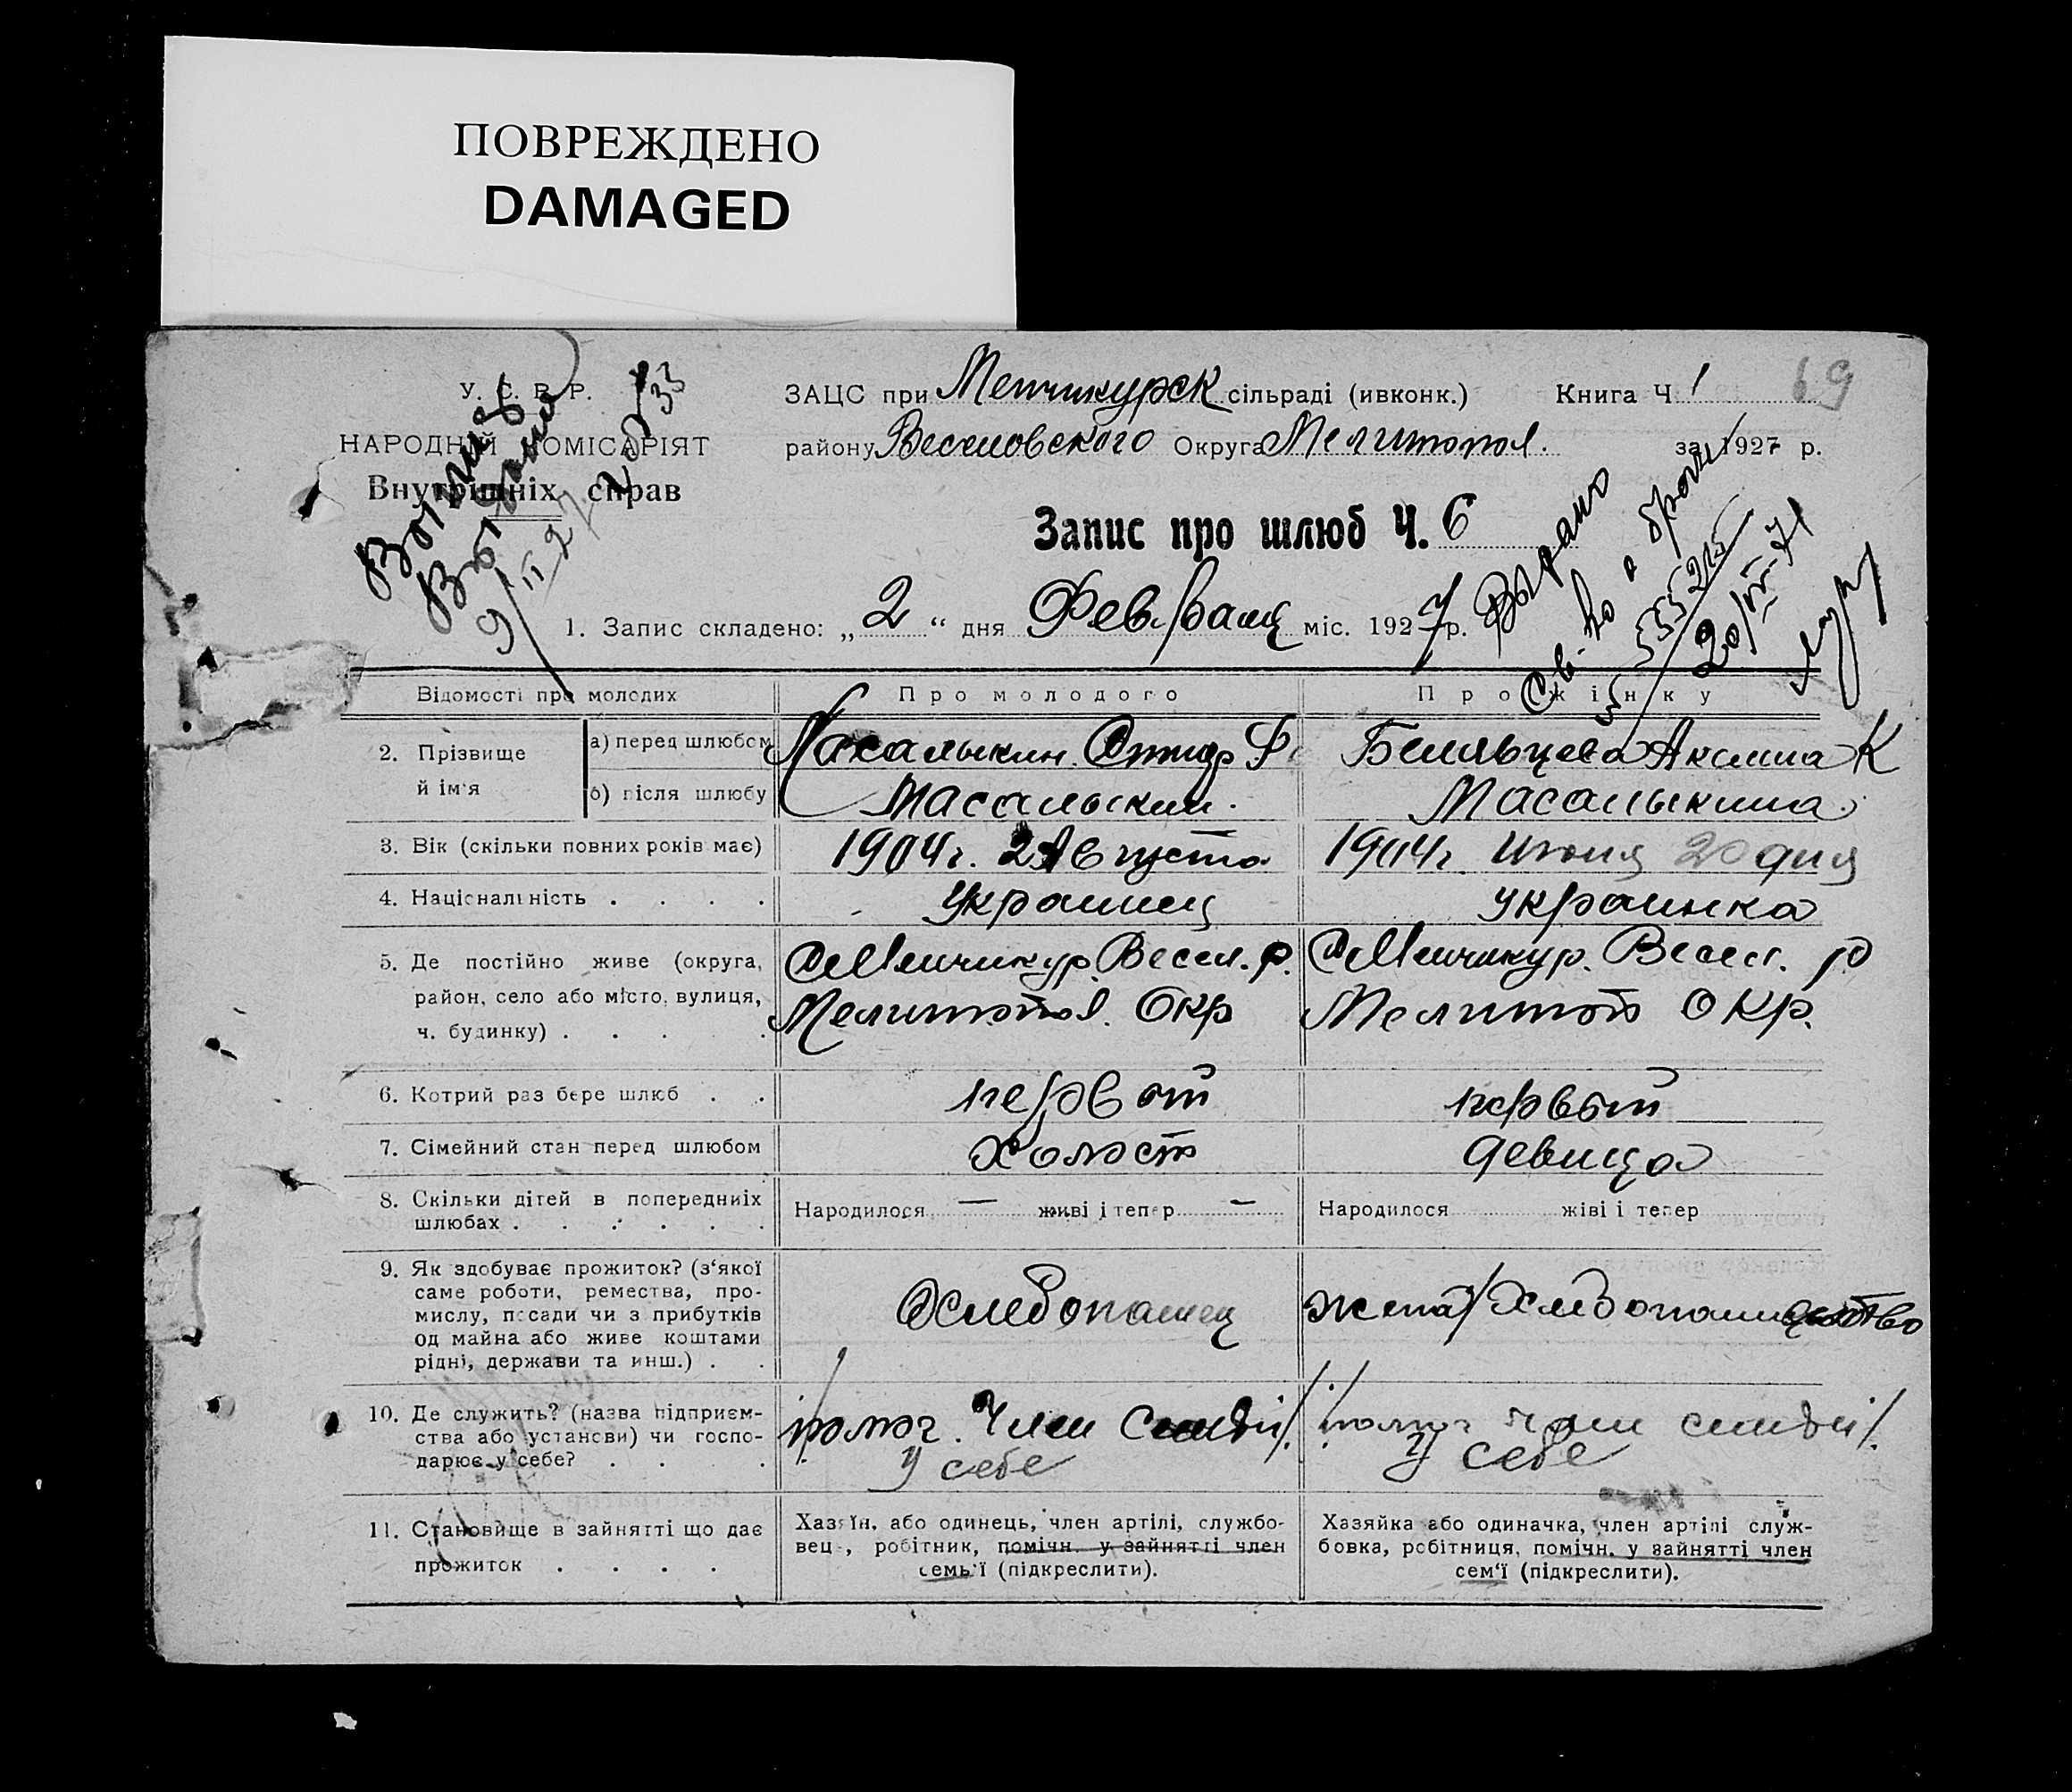 ПОВРЕЖДЕНО
DAMAGED
У. С. В. Р.
НАРОДНІЙ КОМІСАРІЯТ
Внутрішніх справ
Выпись
Выдана
9/II 27
ЗАЦС при Менчикурск сільраді (ивконк.) Книга Ч 1 69
району Веселовского Округа Мелитопол. за 1927 р.
Запис про шлюб Ч. 6
1. Запис складено: „2“ дня Февраля міс. 1927 р.
Выдано
Св-во о браке
20/IV-71
Відомості про молодих Про молодого Про жінку
2. Прізвище й ім'я
а) перед шлюбом Масалыкин Ф. Белявцева Аксинia К
б) після шлюбу Масалыкин. Масалыкина
3. Вік (скільки повних років має) 1904 г. 2 Августа 1904 г. Июня 20 дня
4. Національність . . . . Украинец украинка
5. Де постійно живе (округа, С Менчикур. Весел. р. С Менчикур. Весел. р
район, село або місто, вулиця, Мелитопол. Окр Мелитоп Окр.
ч. будинку) . . . .
6. Котрий раз бере шлюб . . первый первый
7. Сімейний стан перед шлюбом холост девица
8. Скільки дітей в попередніх
шлюбах . . . . . . Народилося — живі і тепер — Народилося живі і тепер
9. Як здобуває прожиток? (з'якої
саме роботи, ремества, про-
мислу, посади чи з прибутків Хлебопашец жена/Хлебопашество
од майна або живе коштами
рідні, держави та инш.) . .
10. Де служить? (назва підприєм- /помог. Член семьи/. /помог член семьи/.
ства або установи) чи госпо- у себе у себе
дарює у себе? . . . .
11. Становище в зайнятті що дає
прожиток . . . .
Хазяїн, або одинець, член артілі, службо-
вець, робітник, помічн. у зайнятті член
семь'ї (підкреслити).
Хазяйка або одиначка, член артілі служ-
бовка, робітниця, помічн. у зайнятті член
сем'ї (підкреслити).